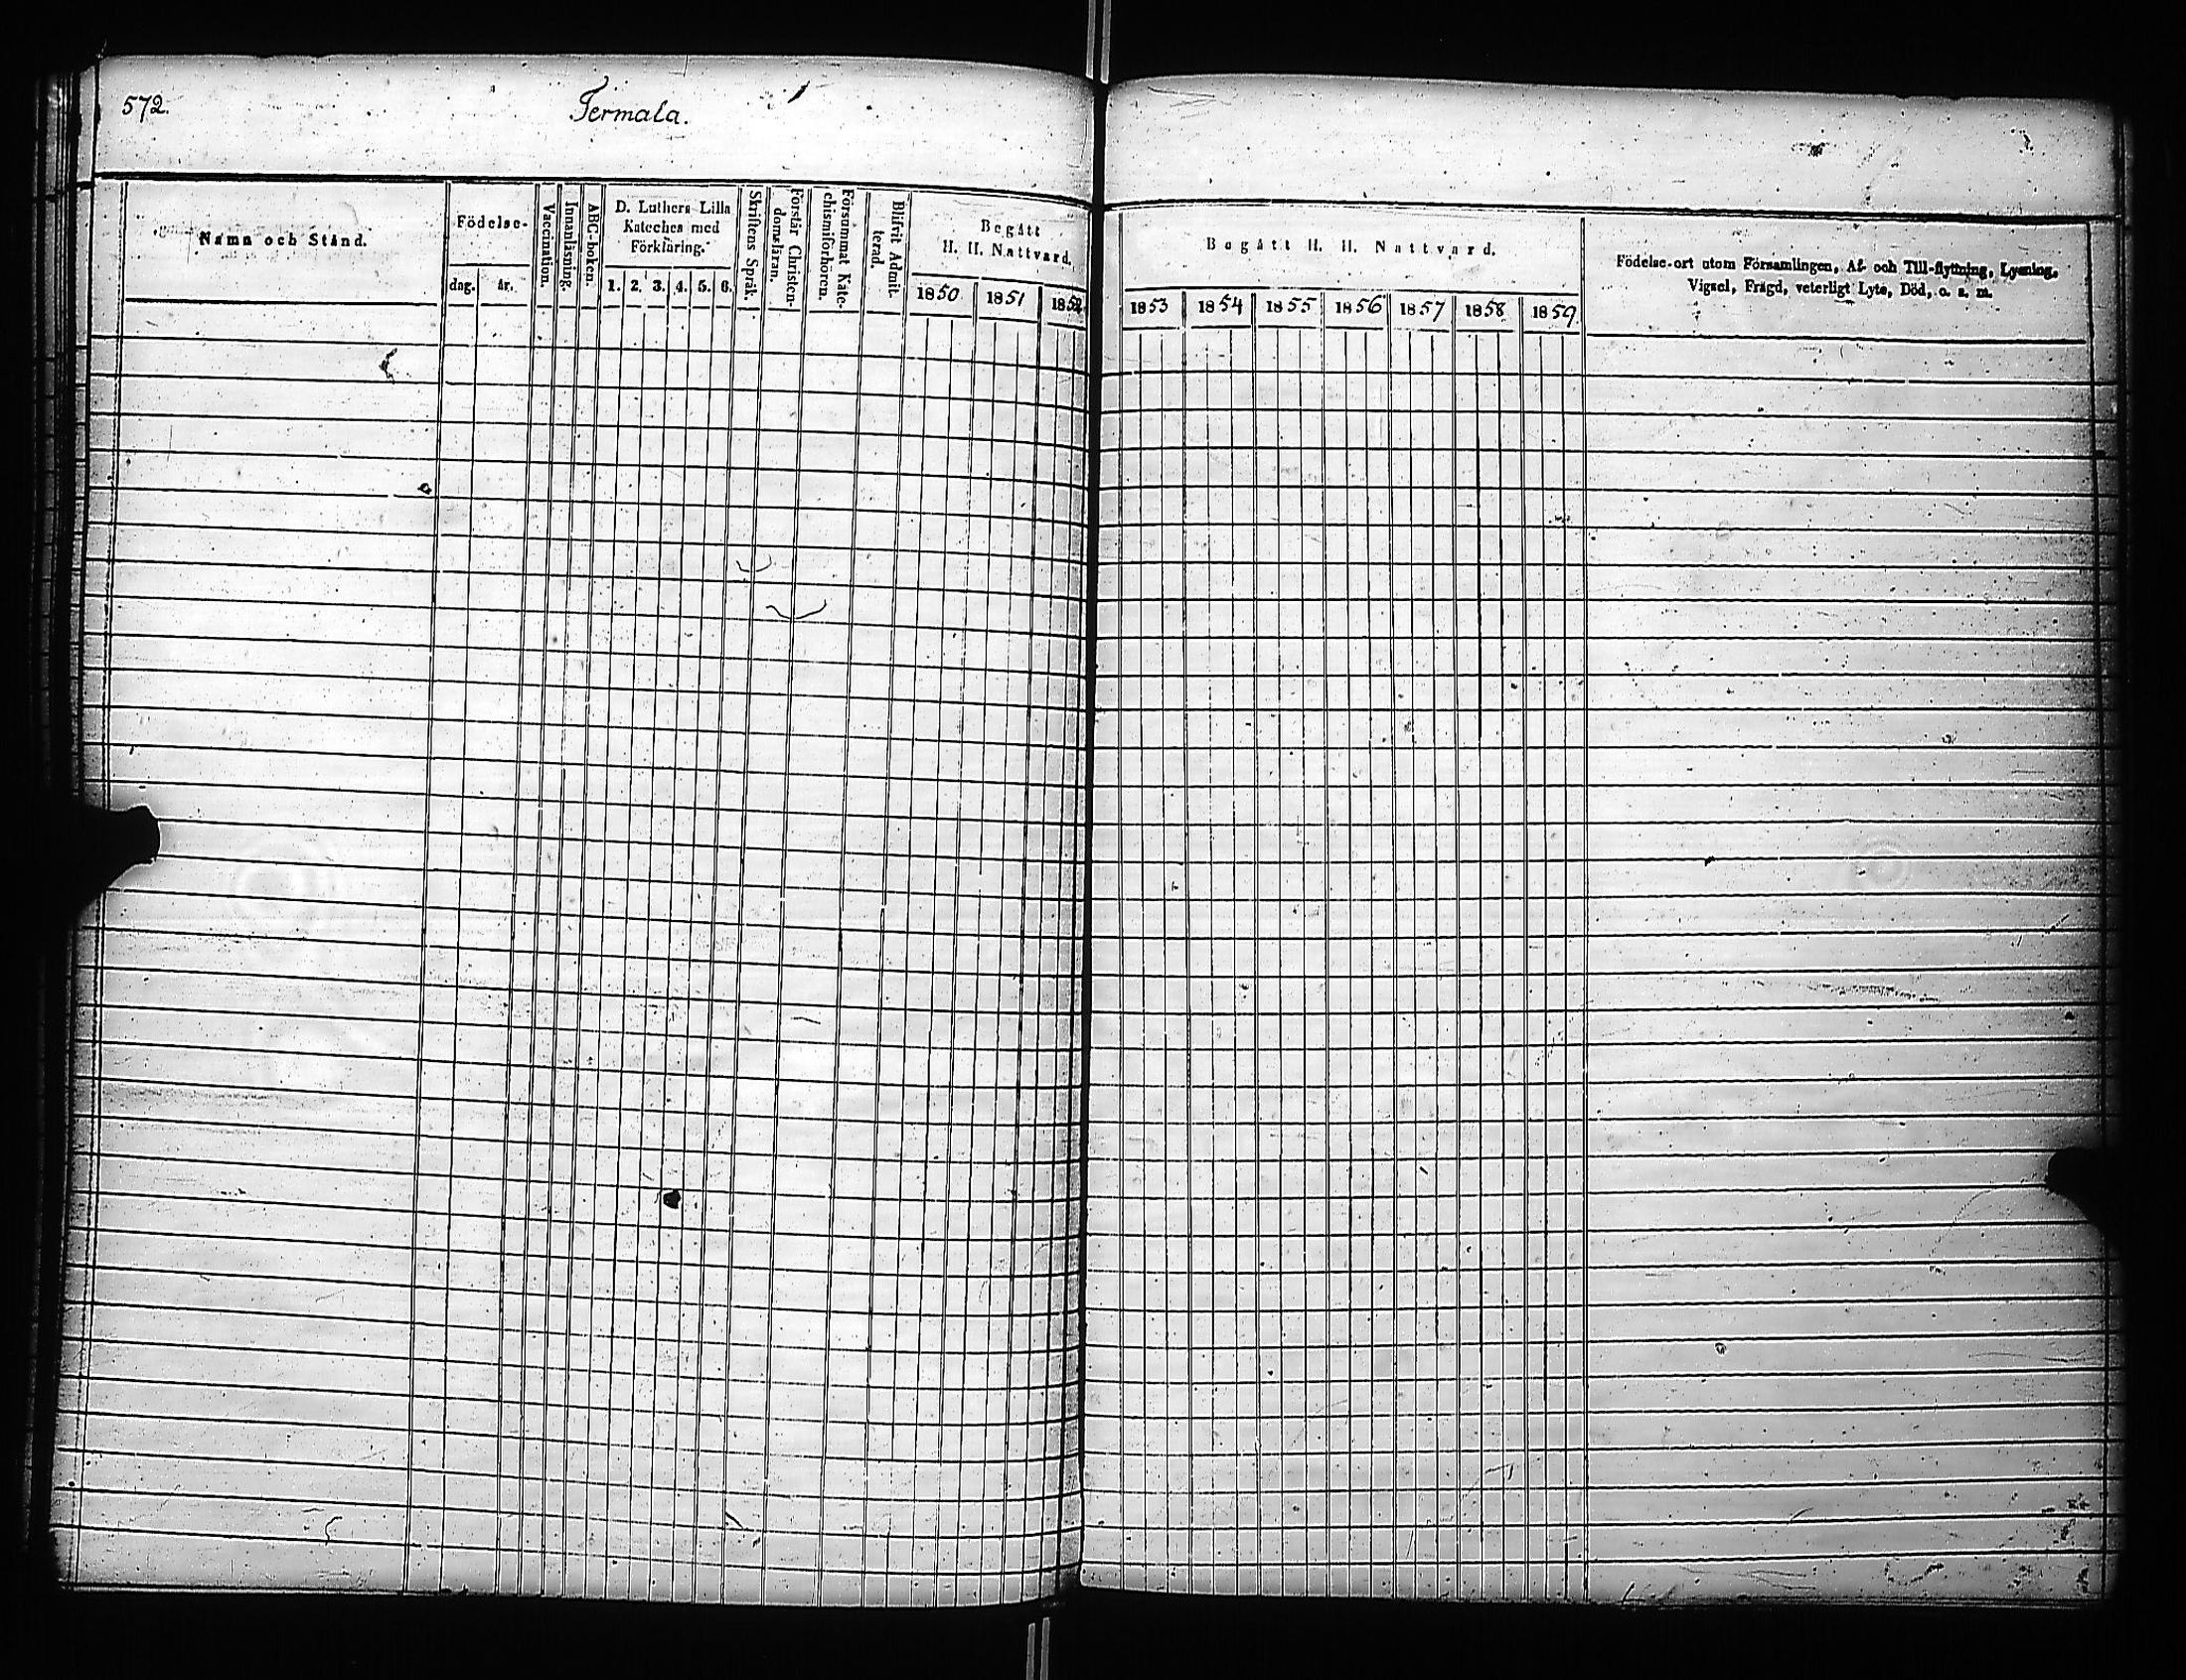 572.
Termala.
Namn och Stånd.
Födelse-
dag.
år.
Vaccination.
Innanläsning.
ABC-boken.
D. Luthers Lilla
Kateches med
Förklaring.
1. 2. 3. 4. 5. 6.
Skriftens Språk.
Förstår Christen-
domsläran.
Försummat Kate-
chismiförhören.
Blifvit Admit-
terad.
Begått
H. H. Nattvard.
1850
1851
1852
Begått H. H. Nattvard.
1853
1854
1855
1856
1857
1858
1859.
Födelse-ort utom Församlingen, Af- och Till-flyttning, Lysning,
Vigsel, Frägd, veterligt Lyte, Död, o. s. m.